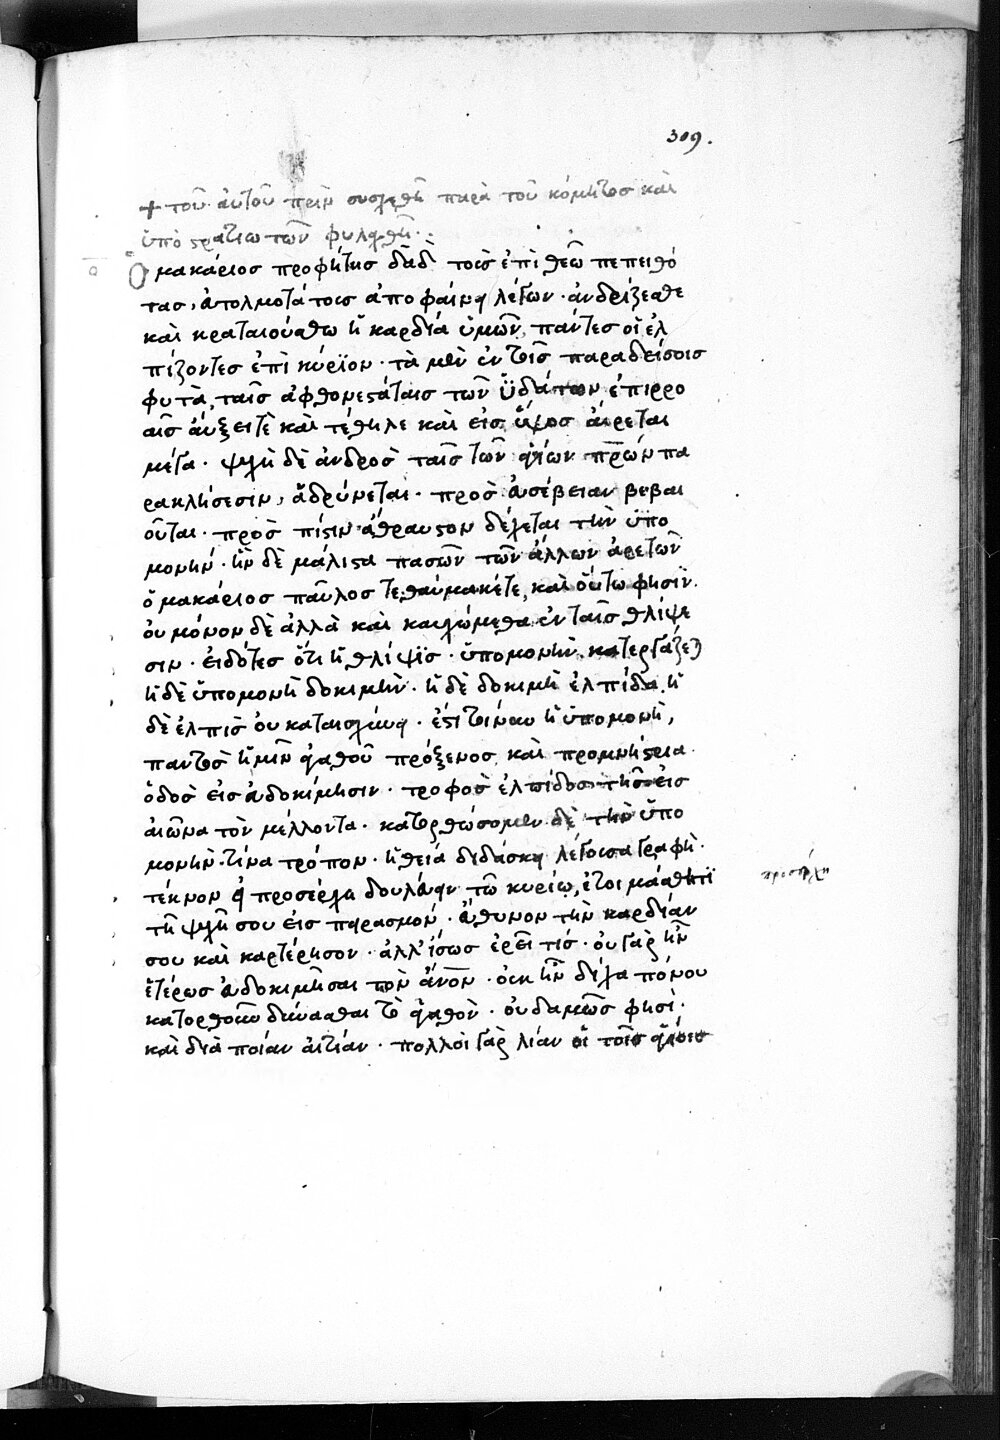 309.
+ τοῦ αὐτοῦ πρὶν συσχεθῆ παρὰ τοῦ κόμητος καὶ
ὑπὸ στρατιωτῶν φυλαχθῆ·:
Ὁ μακάριος προφήτης δαδ τοῖς ἐπὶ θεῶ πεποιθό
τας, ἀπολμοτάτοις ἀποφαίνει λέγων· ἀνδρίζεσθε
καὶ κραταιούσθω ἡ καρδία ὑμῶν, πάντες οἱ ἐλ
πίζοντες ἐπὶ κύριον· τὰ μὲν ἐν τοῖς παραδείσοις
φυτὰ, ταῖς ἀφθονεστάταις τῶν ὑδάτων ἐπιρρο
αῖς αὔξει τὲ καὶ τέθηλε καὶ εἰς ὕψος αἴρεται
μέγα· ψυχὴ δὲ ἀνδρὸς ταῖς τῶν ἁγίων πρων πα
ρακλήσεσιν, ἁδρύνεται· πρὸς ἀσέβειαν βεβαι
οῦται· πρὸς πίστιν ἄθραυστον δέχεται τὴν ὑπο
μονήν· ἣν δὲ μάλιστα πασῶν τῶν ἄλλων ἀρετῶν
ὁ μακάριος παῦλος τεθαύμακέ τε, καὶ οὕτω φησὶν·
οὐ μόνον δὲ ἀλλὰ καὶ καυχώμεθα ἐν ταῖς θλίψε
σιν· εἰδότες ὅτι ἡ θλίψις· ὑπομονὴν κατεργάζεται
ἡ δὲ ὑπομονὴ δοκιμήν· ἡ δὲ δοκιμὴ ἐλπίδα, ἡ
δὲ ἐλπὶς οὐ καταισχύνει· ἔστι τοίνυν ἡ ὑπομονὴ,
παντὸς ἡμῖν ἀγαθοῦ πρόξενος καὶ προμνήστρια
ὁδὸς εἰς εὐδοκίμησιν· τροφὸς ἐλπίδος τῆς εἰς
αἰῶνα τὸν μέλλοντα· κατορθώσομεν δὲ τὴν ὑπο
μονὴν τίνα τρόπον· ἡ θεία διδάσκει λέγουσα γραφή·
τέκνον εἰ προσέρχη δουλεύειν τῶ κυρίω, ἑτοιμάσθητι
τῆ ψυχῆ σου εἰς πειρασμόν· εὔθυνον τὴν καρδίαν
σου καὶ καρτέρησον· ἀλλ' ἴσως ἐρεῖ τίς· οὐ γὰρ ἦν
ἑτέρως εὐδοκιμῆσαι τὸν ἄνον· οὐκ ἦν δίχα πόνου
κατορθοῦν δύνασθαι τὸ ἀγαθὸν· οὐδαμῶς φησὶ·
καὶ διὰ ποίαν αἰτίαν· πολλοὶ γὰρ λίαν οἱ τοῖς ἁγίοις